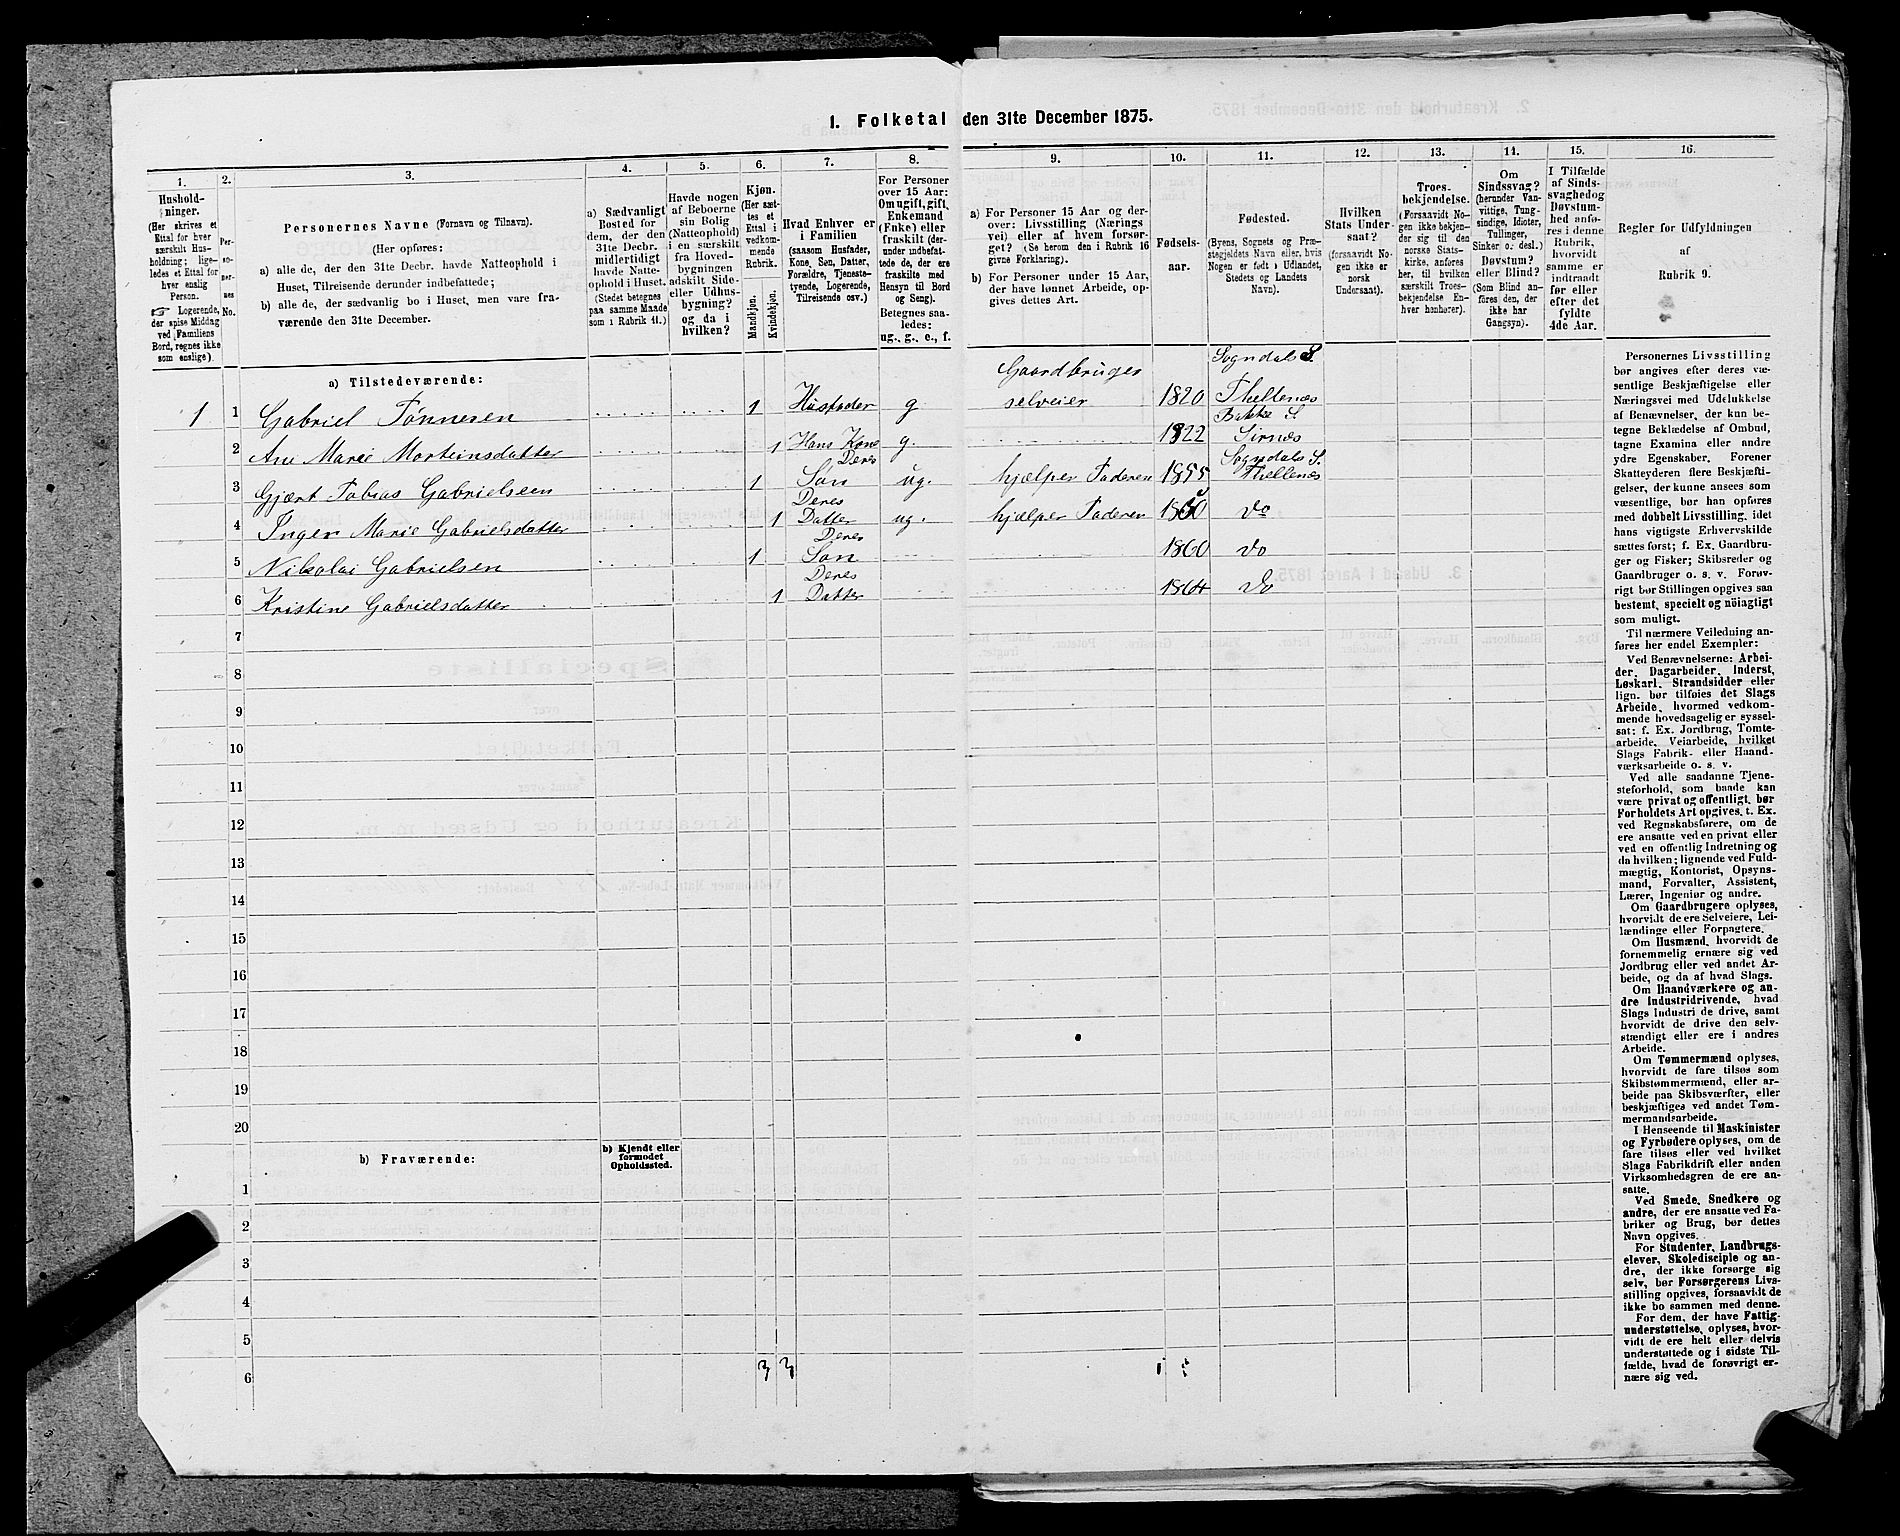 1. Folketal den 31te December 1875.
1. 2. 3. 4. 5. 6. 7. 8. 9. 10. 11. 12. 13. 14. 15. 16.
Hushold-
ninger.
(Her skrives et
Ettal for hver
særskilt Hus-
holdning; lige-
ledes et Ettal for
hver enslig
Person.
☞ Logerende,
der spise Middag
ved Familiens
Bord, regnes ikke
som enslige).
Per-
so-
ner-
nes
No.
Personernes Navne (Fornavn og Tilnavn).
(Her opføres:
a) alle de, der den 31te Decbr. havde Natteophold i
Huset, Tilreisende derunder indbefattede;
b) alle de, der sædvanlig bo i Huset, men vare fra-
værende den 31te December.
a) Sædvanligt
Bosted for
dem, der den
31te Decbr.
midlertidigt
havde Natte-
ophold i Huset.
(Stedet betegnes
paa samme Maade
som i Rubrik 11.)
Havde nogen
af Beboerne
sin Bolig
(Natteophold)
i en særskilt
fra Hoved-
bygningen
adskilt Side-
eller Udhus-
bygning?
og da i
hvilken?
Kjøn.
(Her sæt-
tes et
Ettal i
vedkom-
mende
Rubrik.
Mandkjøn.
Kvindekjøn.
Hvad Enhver er
i Familien
(saasom Husfader,
Kone, Søn, Datter,
Forældre, Tjeneste-
tyende, Logerende,
Tilreisende osv.)
For Personer
over 15 Aar:
Om ugift, gift,
Enkemand
(Enke) eller
fraskilt (der-
under indbefat-
tede de, der ere
fraskilte med
Hensyn til Bord
og Seng).
Betegnes saa-
ledes:
ug., g., e., f.
a) For Personer 15 Aar og der-
over: Livsstilling (Nærings
vei) eller af hvem forsør-
get? (Se herom den i Rubrik 16
givne Forklaring).
b) For Personer under 15 Aar,
der have lønnet Arbeide, op-
gives dettes Art.
Fødsels-
aar.
Fødested.
(Byens, Sognets og Præ-
stegjeldets Navn eller, hvis
Nogen er født i Udlandet,
Stedets og Landets
Navn).
Hvilken
Stats Under-
saat?
(forsaavidt No-
gen ikke er
norsk
Undersaat).
Troes-
bekjendelse.
(Forsaavidt No-
gen ikke bekjen-
der sig til den
norske Stats-
kirke, anføres
her, til hvilken
særskilt Troes-
bekjendelse En-
hver henhører).
Om
Sindssvag?
(herunder Van-
vittige, Tung-
sindige, Idioter,
Tullinger,
Sinker o. desl.)
Døvstum?
eller Blind?
(Som Blind an-
føres den, der
ikke har
Gangsyn).
I Tilfælde
af Sinds-
svaghedog
Døvstum-
hed anfø-
res i denne
Rubrik,
hvorvidt
samme er
indtraadt
før eller
efter det
fyldte
4de Aar.
Regler for Udfyldningen
af
Rubrik 9.
a) Tilstedeværende:
1 1 Gabriel Tønnesen 1 Husfader g Gaardbruger selveier 1820 Sogndals S. Thellenæs
2 Ane Marie Morteinsdatter 1 Hans Kone g. 1822 Bakke S. Sirnæs
3 Gjært Tobias Gabrielseen 1 Deres Søn ug. hjælper Faderen 1855 Sogndals S. Thellenæs
4 Inger Marie Gabrielsdatter 1 Deres Datter ug. hjælper Faderen Do
5 Nikolai Gabrielsen 1 Deres Søn 1860 Do
6 Kristine Gabrielsdatter 1 Deres Datter 1864 Do
7
8
9
10
11
12
13
14
15
16
17
18
19
20
b) Fraværende:
b) Kjendt eller
formodet
Opholdssted.
1
2
3
4
5
6
3 3
Personernes Livsstilling
bør angives efter deres væ-
sentlige Beskjæftigelse eller
Næringsvei med Udelukkelse
af Benævnelser, der kun be-
tegne Beklædelse af Ombud,
tagne Examina eller andre
ydre Egenskaber. Forener
Skatteyderen flere Beskjæfti-
gelser, der kunne ansees som
væsentlige, bør han opføres
med dobbelt Livsstilling, idet
hans vigtigste Erhvervskilde
sættes først; f. Ex. Gaardbru-
ger og Fisker; Skibsreder og
Gaardbruger o. s. v. Forøv-
rigt bør Stillingen opgives saa
bestemt, specielt og nöiagtigt
som muligt.
Til nærmere Veiledning an-
føres her endel Exempler:
Ved Benævnelserne: Arbei-
der, Dagarbeider, Inderst,
Løskarl, Strandsidder eller
lign. bør tilføies det Slags
Arbeide, hvormed vedkom-
mende hovedsagelig er syssel-
sat; f. Ex. Jordbrug, Tomte-
arbeide, Veiarbeide, hvilket
Slags Fabrik- eller Haand-
værksarbeide o. s. v.
Ved alle saadanne Tjene-
steforhold, som baade kan
være privat og offentligt, bør
Forholdets Art opgives, t. Ex.
ved Regnskabsførere, om de
ere ansatte ved en privat eller
ved en offentlig Indretning og
da hvilken; lignende ved Fuld-
mægtig, Kontorist, Opsyns-
mand, Forvalter, Assistent,
Lærer, Ingeniør og andre.
Om Gaardbrugere oplyses,
hvorvidt de ere Selveiere, Lei-
lændinge eller Forpagtere.
Om Husmænd, hvorvidt de
fornemmelig ernære sig ved
Jordbrug eller ved andet Ar-
beide, og da af hvad Slags.
Om Haandværkere og an-
dre Industridrivende, hvad
Slags Industri de drive, samt
hvorvidt de drive den selv-
stændigt eller ere i andres
Arbeide.
Om Tømmermænd oplyses,
hvorvidt de fare tilsøs som
Skibstømmermænd, eller ar-
beide paa Skibsværfter, eller
beskjæftiges ved andet Tøm-
mermandsarbeide.
I Henseende til Maskinister
og Fyrbødere oplyses, om de
fare tilsøs eller ved hvilket
Slags Fabrikdrift eller anden
Virksomhedsgren de ere an-
satte.
Ved Smede, Snedkere og
andre, der ere ansatte ved Fa-
briker og Brug, bør dettes
Navn opgives.
For Studenter, Landbrugs-
elever, Skoledisciple og an-
dre, der ikke forsørge sig
selv, bør Forsørgerens Livs-
stilling opgives, forsaavidt de
ikke bo sammen med denne.
For dem, der have Fattig-
understøttelse, oplyses, hvor-
vidt de ere helt eller delvis
understøttede og i sidste Til-
fælde, hvad de forøvrigt er-
nære sig ved.